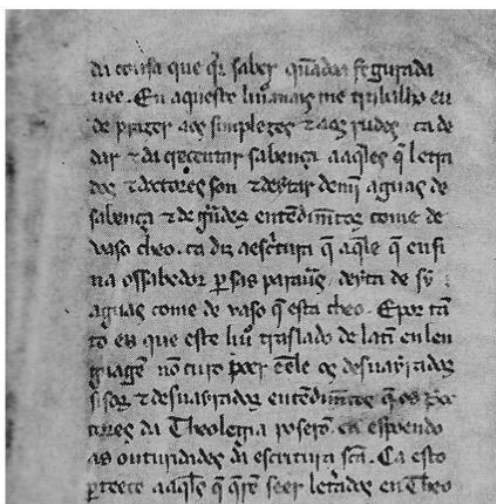 da cousa que q̃r saber q̃uãdoa fegurada
uee. En aqueste liuͦ mais me trabalho eu
de prazer aos simplezes ⁊ aos rudes ca de
dar ⁊ da crecentar sabença aaq̃les q̃ letra
dos ⁊ doctores son ⁊ deytar demỹ aguas de
sabença ⁊ de grãdes entẽdimẽtos come de
vaso cheo. ca diz aescritura q̃ aq̃le q̃ ensi
na ossabedor per sas parauas deyta de sy
aguas come de vaso q̃ esta cheo. Epor tã
to en que este liuͦ traslado de latĩ en len
guagẽ nõ curo poer ẽele os desuayrados
sisos ⁊ desuayrados entẽdimẽtos q̃ os doc
tores da Theolegia poserõ en espoendo
as outuridades da escritura scã. Ca esto
perteece aaq̃les q̃ q̃rẽ seer letrados en Theo